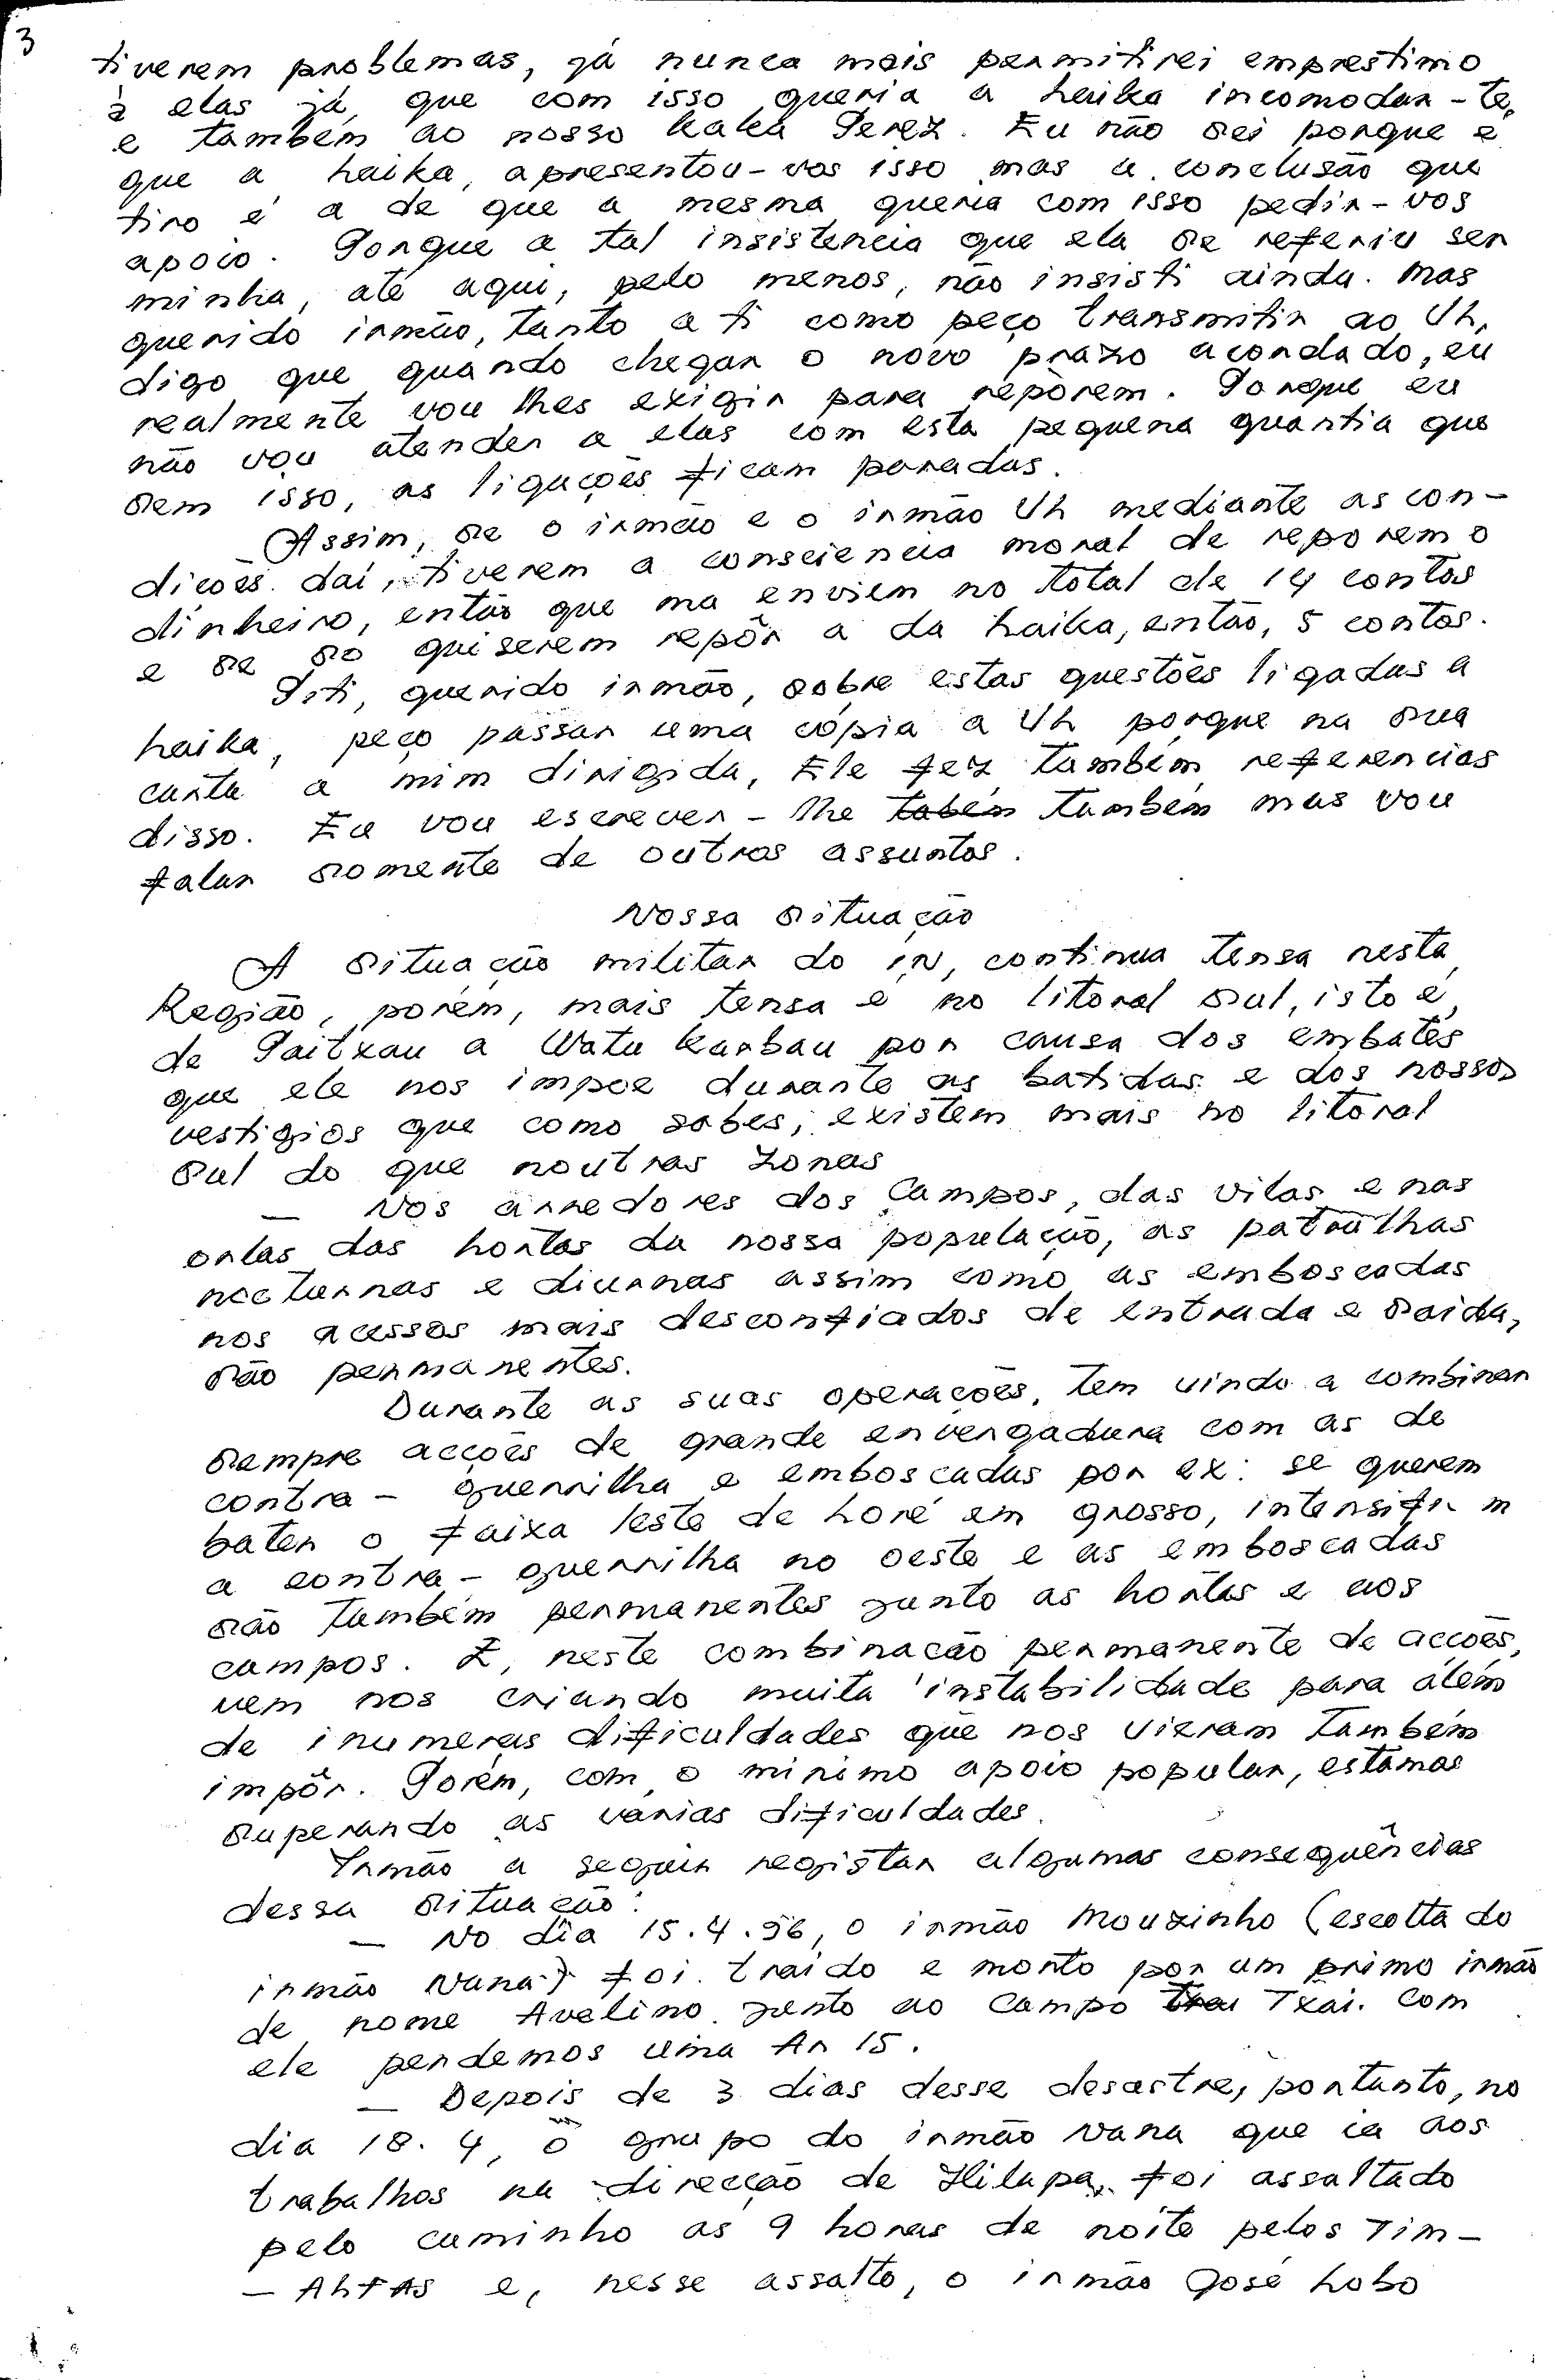 3
tiverem problemas, já nunca mais permitirei emprestimo
à elas já que com isso queria a Laika incomodar-te,
e também ao nosso Kaka Perez. Eu não sei porque é
que a Laika, apresentou-vos isso mas a conclusão que
tiro é a de que a mesma queria com isso pedir-vos
apoio. Porque a tal insistencia que ela se referiu ser
minha, até aqui, pelo menos, não insisti ainda. Mas
querido irmão, tanto a ti como peço transmitir ao Uh,
digo que quando chegar o novo prazo acordado, eu
realmente vou lhes exigir para repôrem. Porque eu
não vou atender a elas com esta pequena quantia que
sem isso, as ligações ficam paradas.
Assim, se o irmão e o irmão Uh mediante as con-
dicões daí, tiverem a consciencia moral de reporem o
dinheiro, então que ma enviem no total de 14 contos
e se so quiserem repôr a da Laika, então, 5 contos.
Piti, querido irmão, sobre estas questões ligadas a
Laika, peço passar uma cópia a Uh porque na sua
carta a mim dirigida, Ele fez também referencias
disso. Eu vou escrever-lhe tabém também mas vou
falar somente de outros assuntos.
Nossa situação
A situação militar do in, continua tensa nesta
Região, porém, mais tensa é no litoral sul, isto é,
de Paitxau a Watu Karbau por causa dos embates
que ele nos impoe durante as batidas e dos nossos
vestigios que como sabes, existem mais no litoral
sul do que noutras zonas
— Nos arredores dos Campos, das vilas e nas
orlas das hortas da nossa população, as patrulhas
nocturnas e diurnas assim como as emboscadas
nos acessos mais desconfiados de entrada e saida,
são permanentes.
Durante as suas operações, tem vindo a combinar
sempre acções de grande envergadura com as de
contra-guerrilha e emboscadas por ex: se querem
bater o faixa leste de Loré em grosso, intensifi m
a contra-guerrilha no oeste e as emboscadas
são também permanentes junto as hortas e aos
campos. E, neste combinação permanente de acções,
vem nos criando muita instabilidade para além
de inumeras dificuldades que nos vieram também
impôr. Porém, com o minimo apoio popular, estamos
superando as várias dificuldades.
Irmão a seguir registar algumas consequências
dessa situação:
— No dia 15.4.96, o irmão Mouzinho (escolta do
irmão Nana) foi traido e morto por um primo irmão
de nome Avelino junto ao campo Txai. Com
ele perdemos uma Ar 15.
— Depois de 3 dias desse desastre, portanto, no
dia 18.4, o grupo do irmão Nana que ia aos
trabalhos na direcção de Hilapa, foi assaltado
pelo caminho as 9 horas de noite pelos Tim-
- Alfas e, nesse assalto, o irmão José Lobo